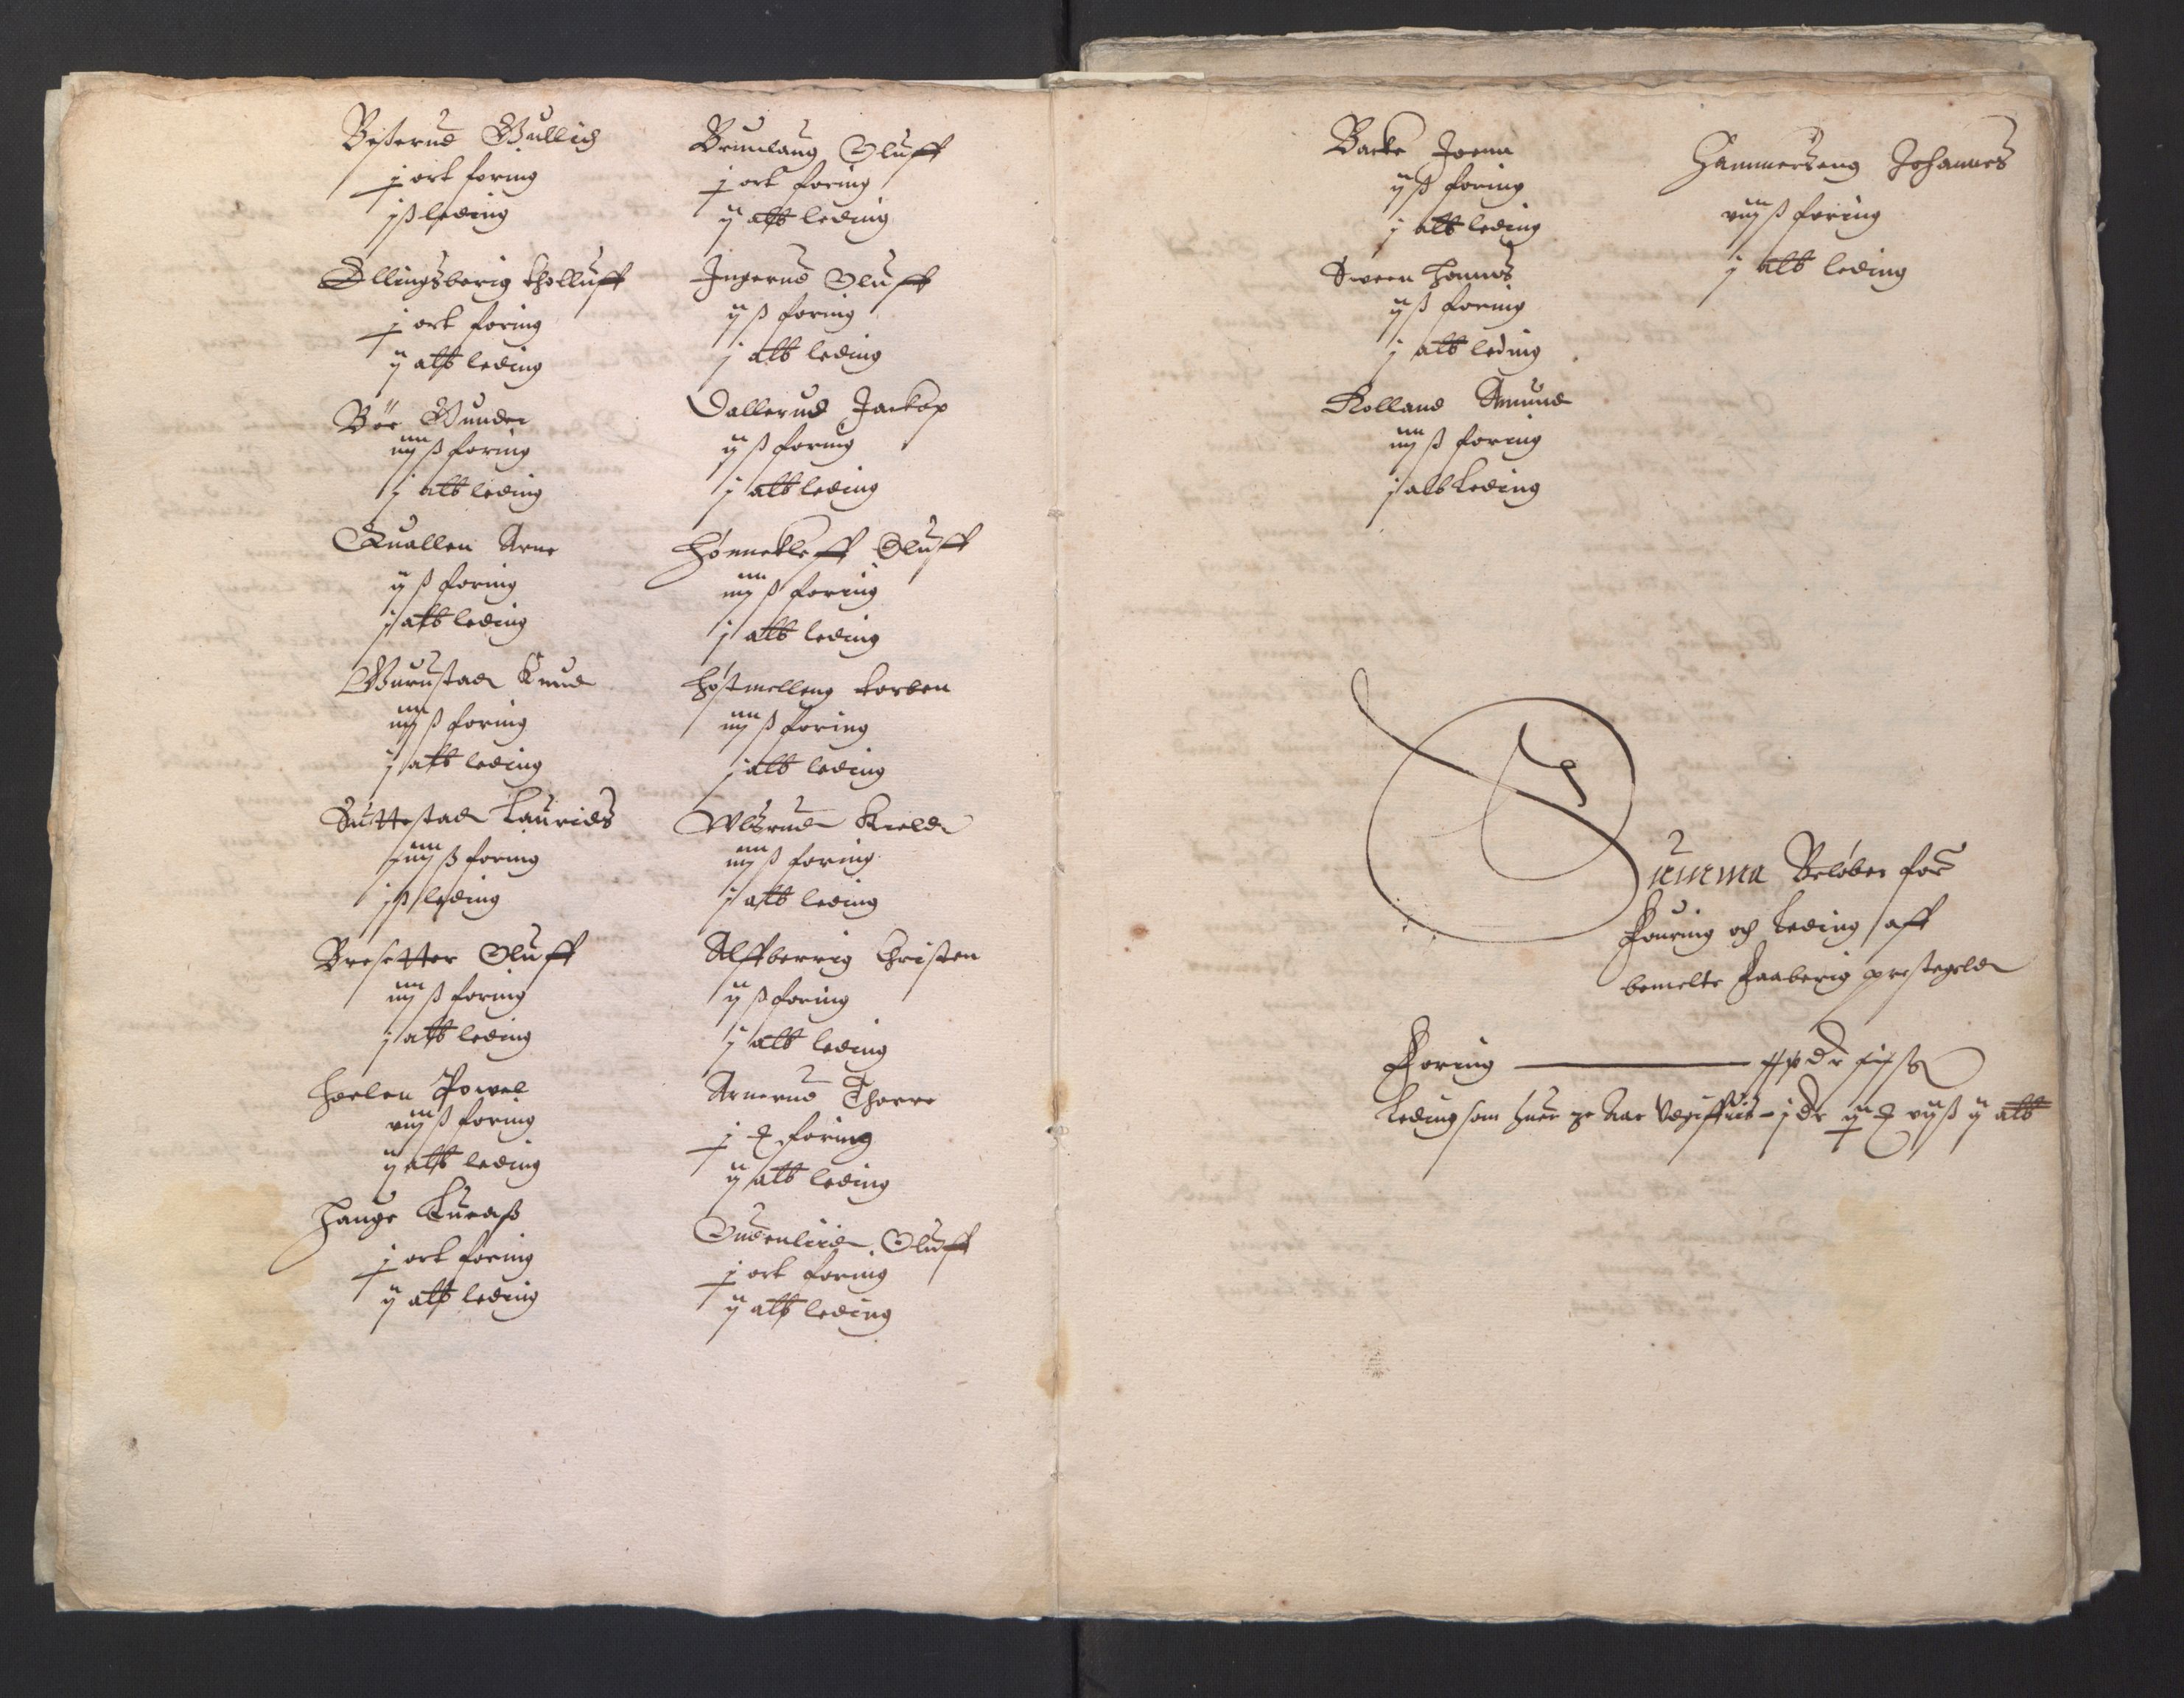 Besserud Gullich
j ort foring
j ß leding
Ellingsberig Tholluff
j ort foring
ij alb leding
Böe Gunder
iiij ß foring
j alb leding
Quallen Arne
ij ß foring
j alb leding
Gurustad Knud
iiij ß foring
j alb leding
Suttestad Laurids
iiij ß foring
j ß leding
Bresetter Oluff
iiij ß foring
j alb leding
Hoelen Powel
viij ß foring
ij alb leding
Hauge
j ort foring
ij alb leding
Brunlaug Oluff
j ort foring
ij alb leding
Ingerud Oluff
ij ß foring
j alb leding
Dallerud Jackop
ij ß foring
j alb leding
Hönnekleff Oluff
iiij ß foring
j alb leding
Höstmelleng Torben
iiij ß foring
j alb leding
Wlsrud Kield
iiij ß foring
j alb leding
Alffberrig Christen
ij ß foring
j alb leding
Arnerud Thorre
j foring
ij alb leding
Oudenlied Oluff
j ort foring
ij alb leding
Backe Joenn
ij ß foring
j alb leding
Sween Hannos
ij ß foring
j alb leding
Rolland Amund
iiij ß foring
j alb Leding
Hammerseng Johannes
viij ß foring
j alb leding
Summa Beløber for
Fouring och Leding aff
bemelte Faaberig prestegeld
Foring
Leding som huer 3e Aar Udgiffuis - j dr viij ß ij alb